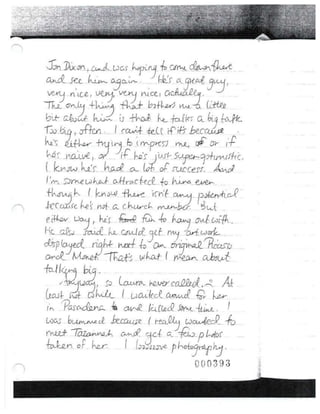 Jon Dixon, and was hoping to come down there
and see him again. He's a great guy,
very nice, very very nice, actually.
The only thing that bothers me a little
bit about him is that he talks a big talk.
Too big, often. I can't tell if it's because
he's either trying to impress me, or if
he's naive, or if he's just super-optimistic.
I know he's had a lot of success. And
I'm somewhat attracted to him even
though I know there isn't any potential
because he's not a church member. But
either way, he's fun to hang out with.
He also said he could get my artwork
displayed right next to an original Picasso
and Monet. That's what I mean about
talking big.
Anyway, so Laura never called. At
least not while I waited around for her
in Pasadena and killed some time. I
was bummed because I really wanted to
meet Tazanneh and get a few photos
taken of her. I looooove photography.
000393